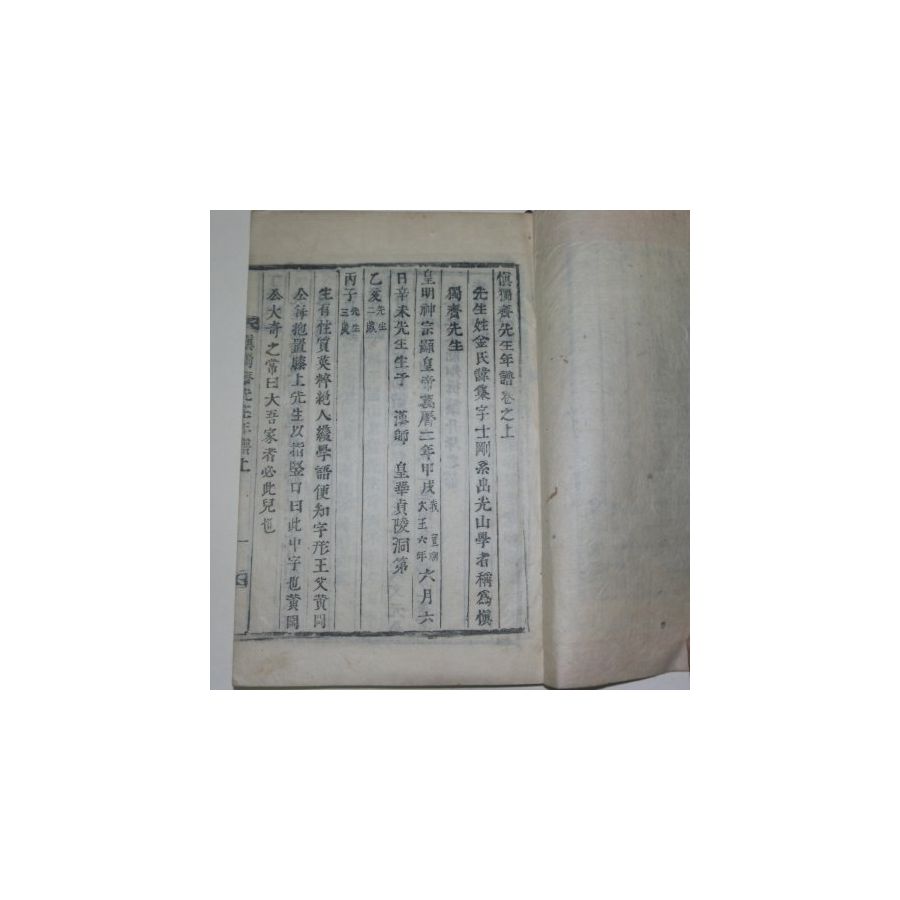 愼獨齋先生年譜卷之上
先生姓金氏諱集字士剛系出光山學者稱爲愼
獨齋先生
皇明神宗顯皇帝萬曆二年甲戌我宣廟大王六年六月六
日辛未先生生于 漢師 皇華貞陵洞第
乙亥先生二歲
丙子先生三歲
生有性質英粹絶人纔學語便知字形王父黃岡
公每抱置膝上先生以指竪口曰此中字也黃岡
公大奇之常曰大吾家者必此兒也
愼獨齋先生年譜上 一